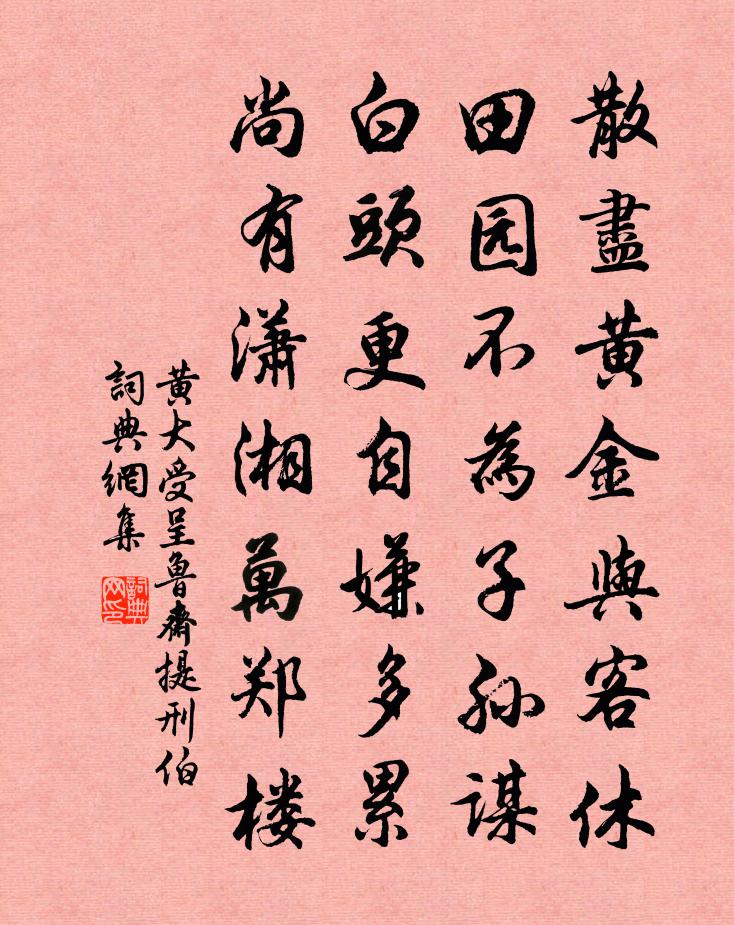 散盡黄金與客休
田园不為子孙謀
白頭更自嫌多累
尚有瀟湘萬郑楼
黄大受呈魯齋提刑伯
詞典網集
詞典网印